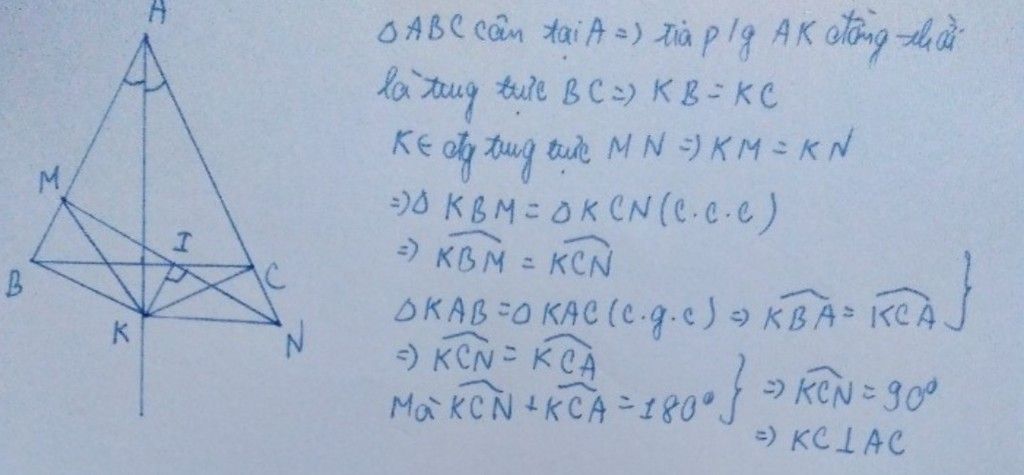 A
M
I
B
C
K
N
Δ ABC cân tại A => tia p/g AK đồng thời
là trung trực BC => KB = KC
K ∈ đg trung trực MN => KM = KN
=> Δ KBM = Δ KCN (c.c.c)
=> \widehat{KBM} = \widehat{KCN}
Δ KAB = Δ KAC (c.g.c) => \widehat{KBA} = \widehat{KCA} }
=> \widehat{KCN} = \widehat{KCA}
Mà \widehat{KCN} + \widehat{KCA} = 180° } => \widehat{KCN} = 90°
=> KC ⊥ AC